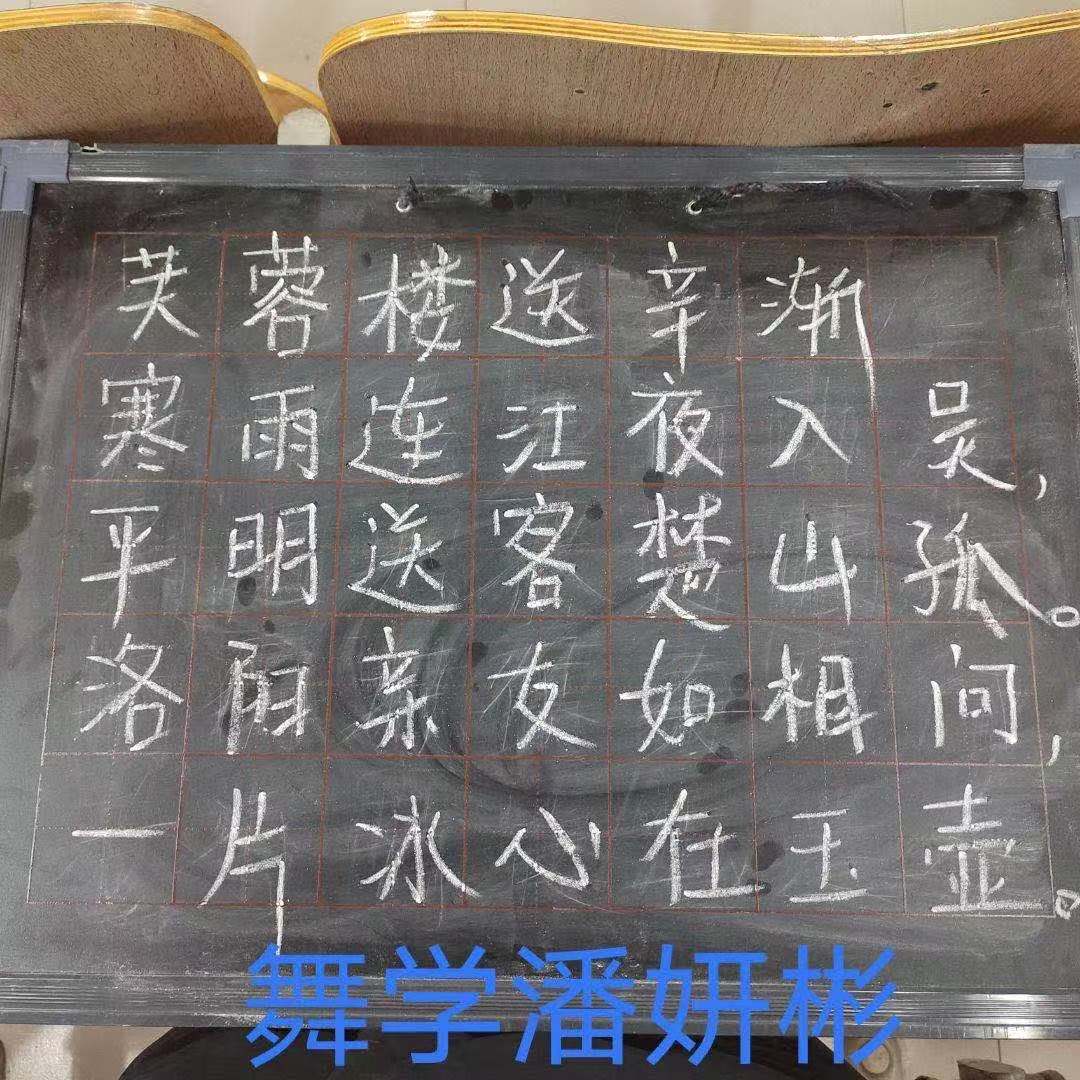 芙蓉楼送辛渐
寒雨连江夜入吴，
平明送客楚山孤。
洛阳亲友如相问，
一片冰心在玉壶。
舞学潘妍彬